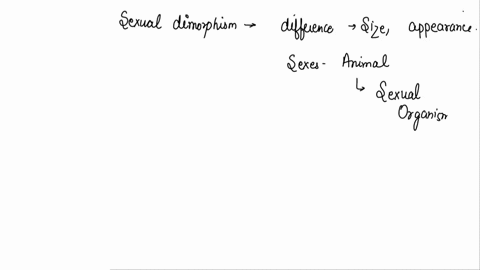 Sexual dimorphism → difference → Size, appearance.
Sexes - Animal
↳ Sexual
Organism